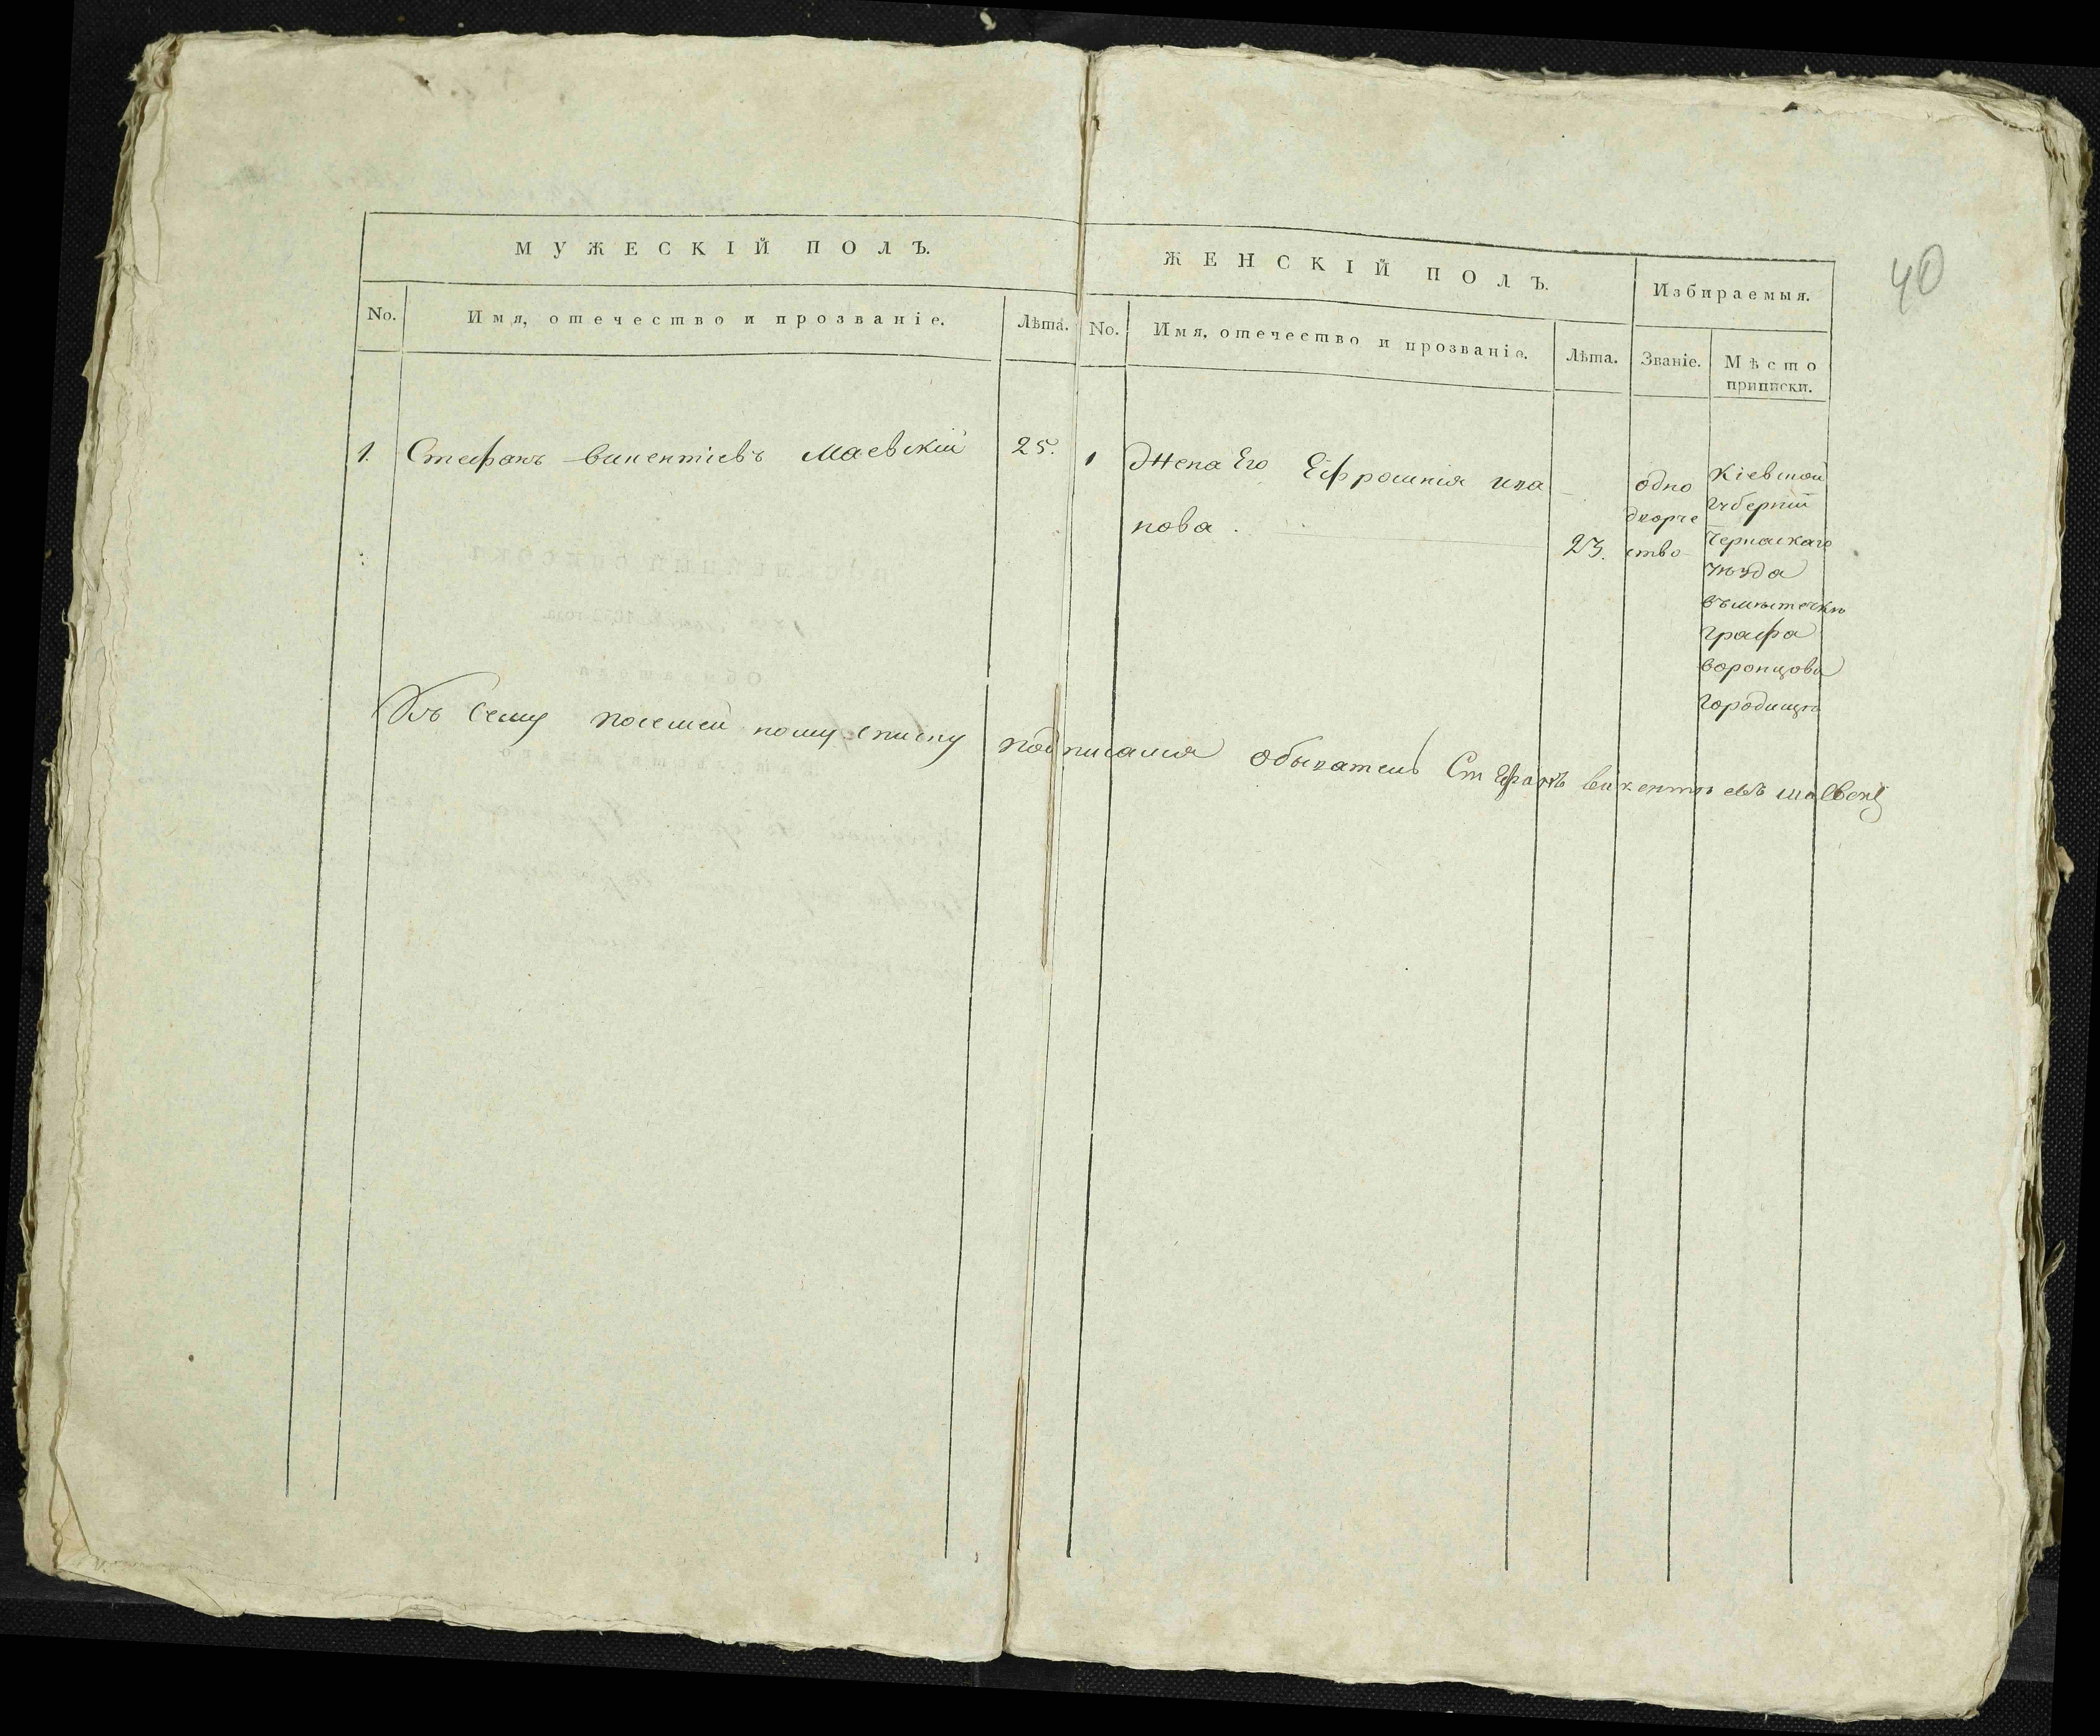 40
МУЖЕСКІЙ ПОЛЪ.
ЖЕНСКІЙ ПОЛЪ.
Избираемыя.
No.
Имя, отечество и прозваніе.
Лѣта.
No.
Имя, отечество и прозваніе.
Лѣта.
Званіе.
Мѣсто
приписки.
1.
Стефанъ Викентіевъ Маевскій
25.
1
Жена Его Ефросинія Ива
нова.
23.
одно
дворче
ство
Кіевской
Губерніи
Черкаскаго
уѣзда
въ мѣстечкѣ
Графа
Воронцова
Городищѣ
Къ сему посемейному списку подписался обыватель Стефанъ Викентіевъ Маевскій